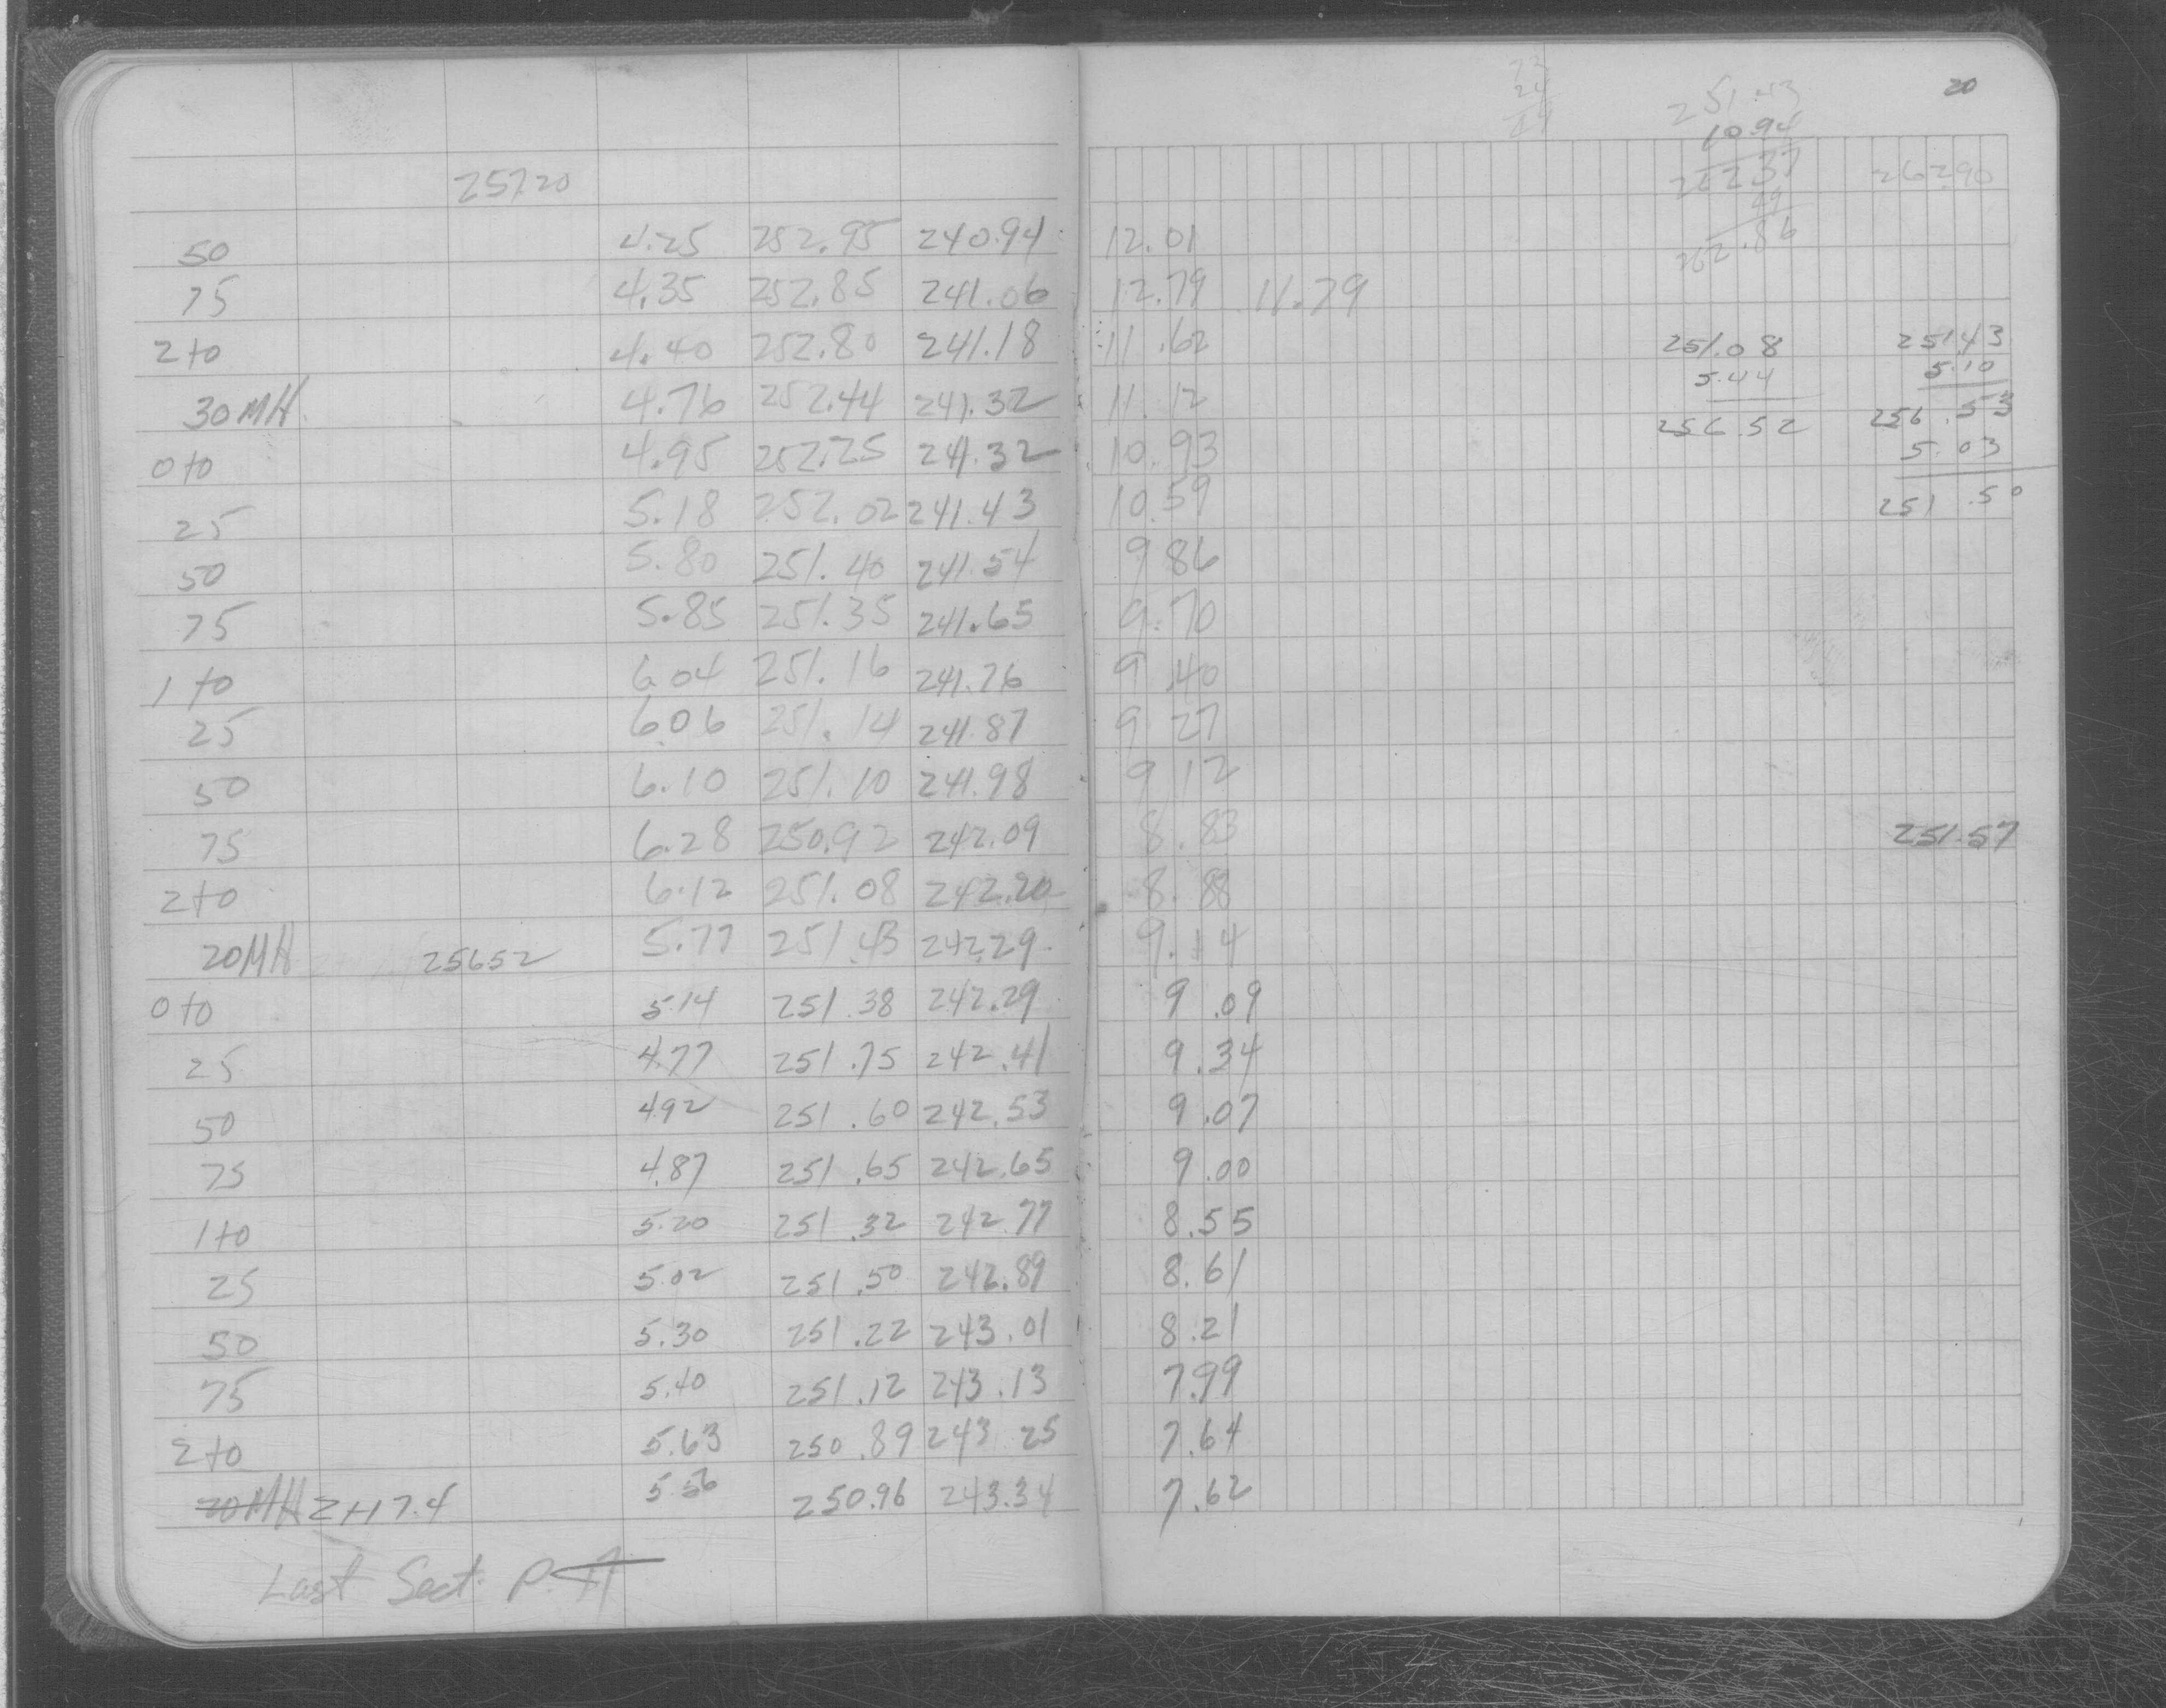 20
251.43
10.94
262 37
49
262.86
262.90
257.20
50 4.25 252.95 240.94 12.01
75 4.35 252.85 241.06 12.79 11.79
2+0 4.40 252.80 241.18 11.62
30MH 4.76 252.44 241.32 11.12
0+0 4.95 252.25 241.32 10.93
25 5.18 252.02 241.43 10.59
50 5.80 251.40 241.54 9.86
75 5.85 251.35 241.65 9.70
1+0 6.04 251.16 241.76 9.40
25 6.06 251.14 241.87 9.27
50 6.10 251.10 241.98 9.12
75 6.28 250.92 242.09 8.83
2+0 6.12 251.08 242.20 8.88
20MH 256.52 5.77 251.43 242.29 9.14
0+0 5.14 251.38 242.29 9.09
25 4.77 251.75 242.41 9.34
50 4.92 251.60 242.53 9.07
75 4.87 251.65 242.65 9.00
1+0 5.20 251.32 242.77 8.55
25 5.02 251.50 242.89 8.61
50 5.30 251.22 243.01 8.21
75 5.40 251.12 243.13 7.99
2+0 5.63 250.89 243 25 7.64
20MH 2+17.4 5.56 250.96 243.34 7.62
Last Sect.
251.08
5.44
256.52
251.43
5.10
256.53
5.03
251.50
251.57